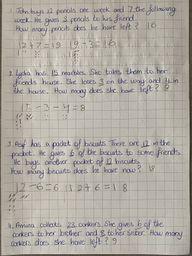 1. John buys 12 pencils one week and 7 the following
week. He gives 3 pencils to his friend.
How many pencils does he have left? 16
12+7=19 19-3=16
2. Lydia has 15 marbles. She takes them to her
friends house. She loses 3 on the way and 4 in
the house. How many does she have left? 8
15-3-4=8
3. Asif has a packet of biscuits. There are 12 in the
packet. He gives 6 of the biscuits to some friends.
He buys another packet of 12 biscuits.
How many biscuits does he have now? 18
12-6=6 12+6=18
4. Amina collects 23 conkers. She gives 6 of the
conkers to her brother and 8 to her sister. How many
conkers does she have left? 9